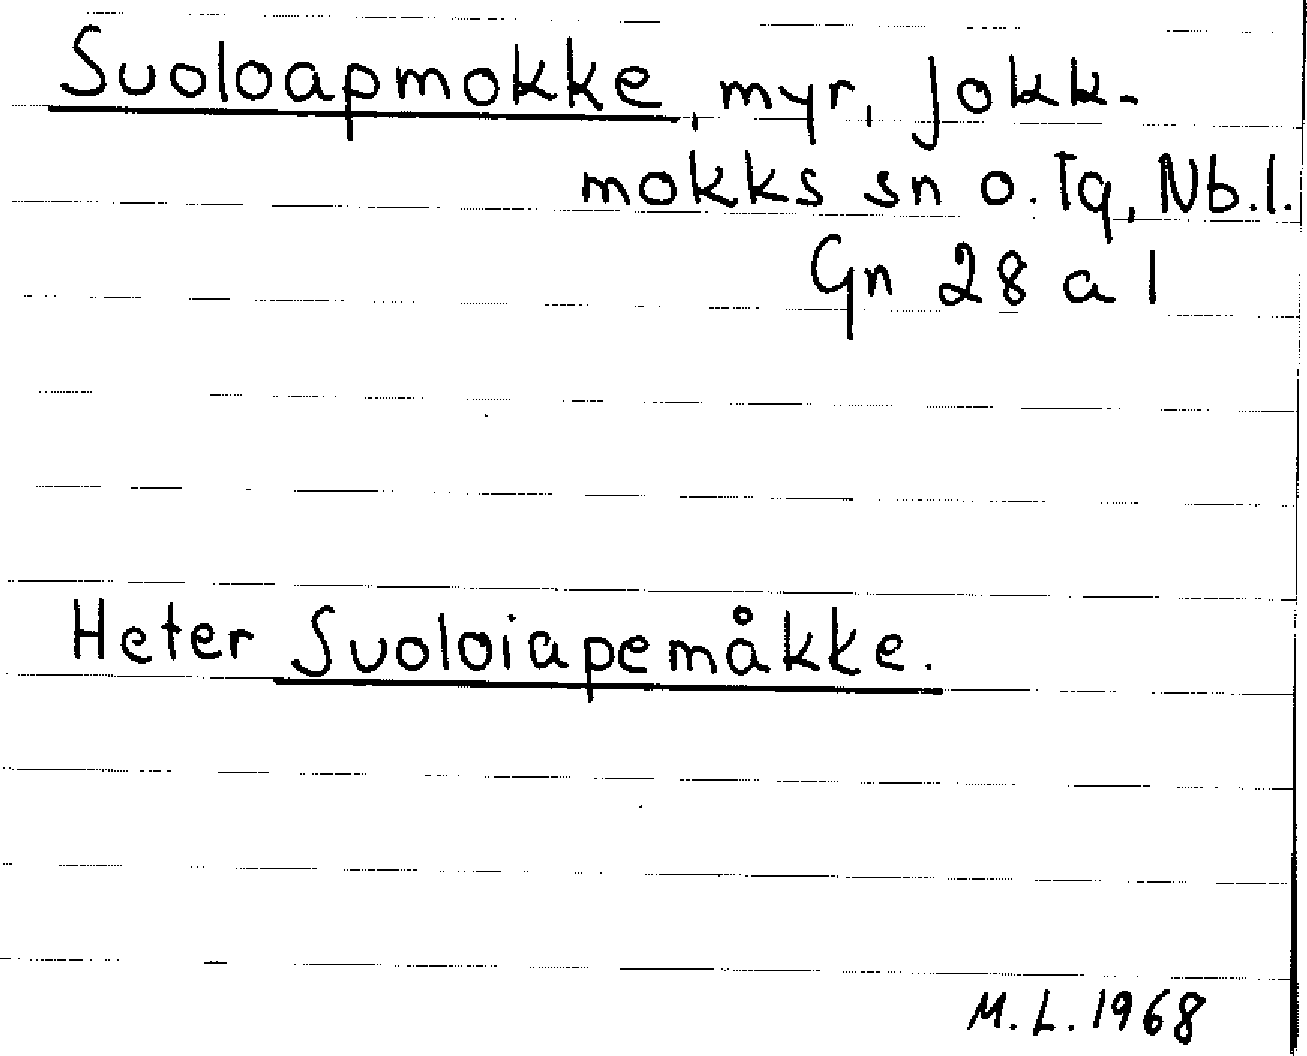 Suoloapmokke, myr, Jokk-
mokks sn o. tq, Nb.l.
Gn 28 a 1
Heter Suoloiapemåkke.
M.L. 1968